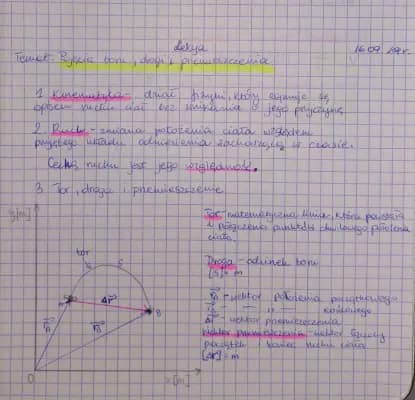 Lekcja
16.09.19r.
Temat: Pojęcia toru, drogi i przemieszczenia
1. Kinematyka - dział fizyki, który zajmuje się
opisem ruchu ciał bez wnikania w jego przyczynę
2. Ruch - zmiana położenia ciała względem
przyjętego układu odniesienia zachodząca w czasie.
Cechą ruchu jest jego względność.
3. Tor, droga i przemieszczenie
y[m]
tor
Δr
A
B
r
r
0
x[m]
Tor - matematyczna linia, która powstaje
z połączenia punktów chwilowego położenia
ciała.
Droga - odcinek toru
[s] = m
r - wektor położenia początkowego
r - " - końcowego
Δr - wektor przemieszczenia
Wektor przemieszczenia - wektor łączący
początek koniec ruchu ciała
[Δr] = m